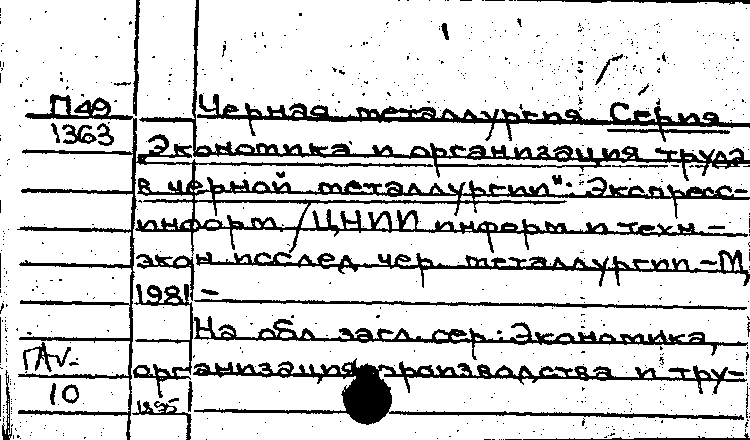 П49 Черная металлургия. Серия
1363 "Экономика и организация труда
в черной металлургии": Экспресс-
информ. / ЦНИИ информ и техн.-
экон исслед чер. металлургии. - М,
1981 -
На обл загл. сер.: Экономика,
организация производства и тру-
10
1895